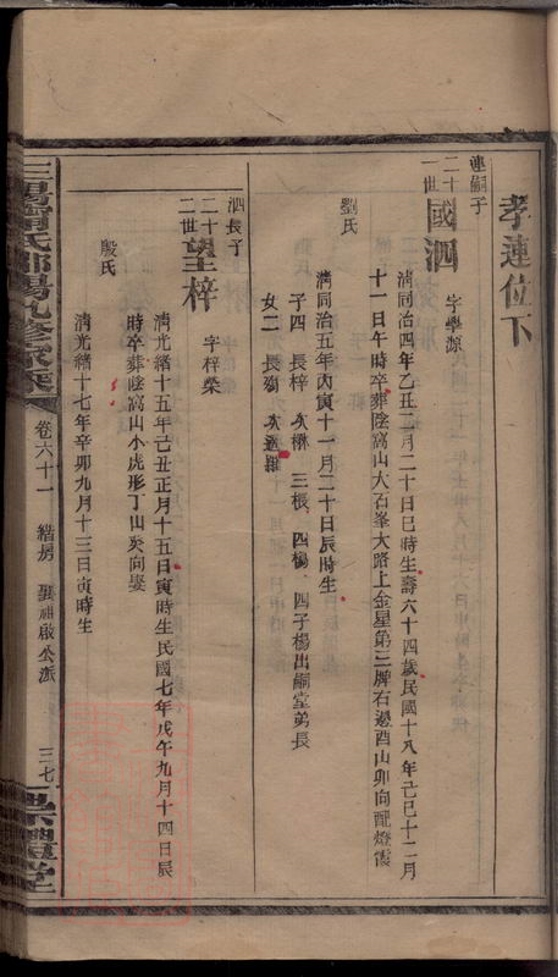 孝連位下
連嗣子
二十一世
國泗
字學源
清同治四年乙丑二月二十日巳時生壽六十四歲民國十八年己巳十二月
十一日午時卒葬陰窩山大石峯大路上金星第三牌右邊酉山卯向配燈霞
劉氏
清同治五年丙寅十一月二十日辰時生
子四 長梓 次楙 三根 四楊 四子楊出嗣堂弟長
女二 長殤 次適羅
泗長子
二十二世
望梓
字梓榮
清光緒十五年己丑正月十五日寅時生民國七年戊午九月十四日辰
時卒葬陰窩山小虎形丁山癸向娶
殷氏
清光緒十七年辛卯九月十三日寅時生
卷六十一
緒房
啟公派
三七